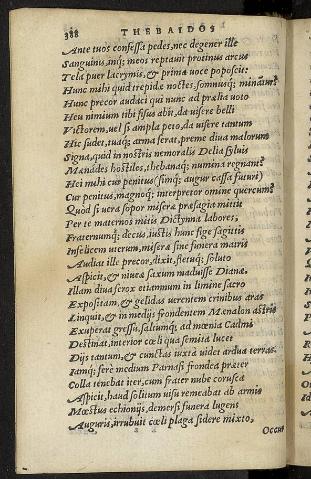 388 THEBAIDOS
Ante tuos confessa pedes, nec degener ille
Sanguinis, inq; meos reptauit protinus arcus
Tela puer lacrymis, & prima uoce poposcit:
Hunc mihi quid trepidæ noctes, somnusq; minatur?
Hunc precor audaci qui nunc ad prælia uoto
Heu nimium tibi fisus abit, da uisere belli
Victorem, uel si ampla peto, da uisere tantum
Hic sudet, tuaq; arma ferat, preme diua malorum
Signa, quid in nostris nemoralis Delia syluis
Mænades hostiles, thebanaq; numina regnant?
Hei mihi cur penitus (simq; augur cassa futuri)
Cur penitus, magnoq; interpretor omine quercum?
Quod si uera sopor miseræ præsagia mittit
Per te maternos mitis Dictynna labores,
Fraternumq; decus, iustis hunc fige sagittis
Infelicem uterum, miseræ sine funera matris
Audiat ille precor, dixit, fletuq; soluto
Aspicit, & niuea saxum maduisse Dianæ.
Illam diua ferox etiamnum in limine sacro
Expositam, & gelidas uerentem crinibus aras
Linquit, & in medijs frondentem Mænalon astris
Exuperat gressu, saltumq; ad mœnia Cadmi
Destinat, interior cœli qua semita lucet
Dijs tantum, & cunctas iuxta uidet ardua terras.
Iamq; fere medium Parnasi frondea præter
Colla tenebat iter, cum fratér nube corusca
Aspicit, haud solitum uisu remeabat ab armis
Mœstus echionijs, demersi funera lugens
Auguris, irrubuit cœli plaga sidere mixto,
Occur